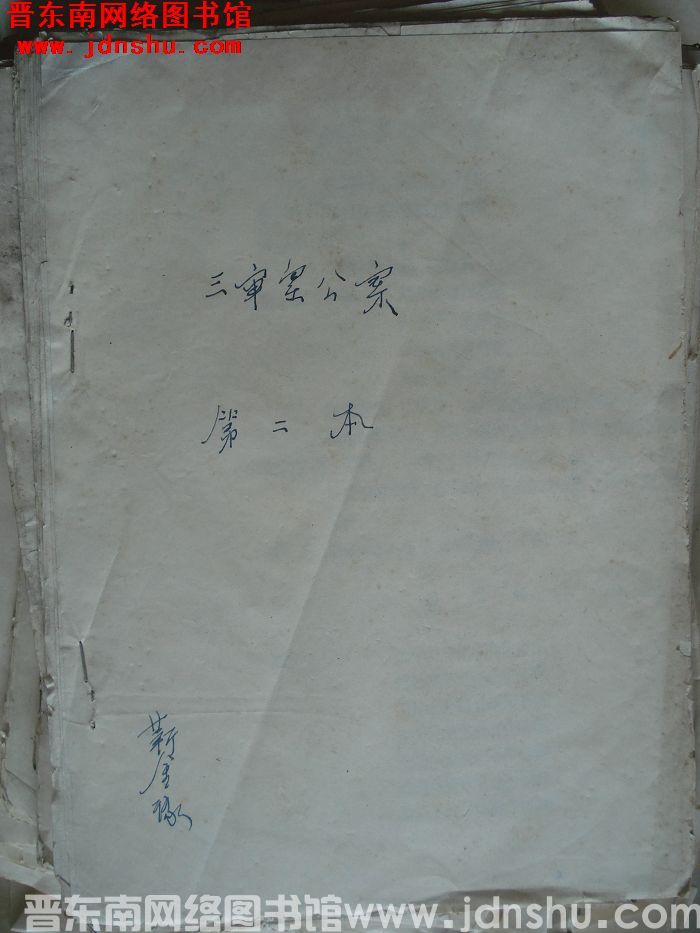 晋东南网络图书馆
www.jdnshu.com
三审呈公案
第二本
靳金
晋东南网络图书馆www.jdnshu.com